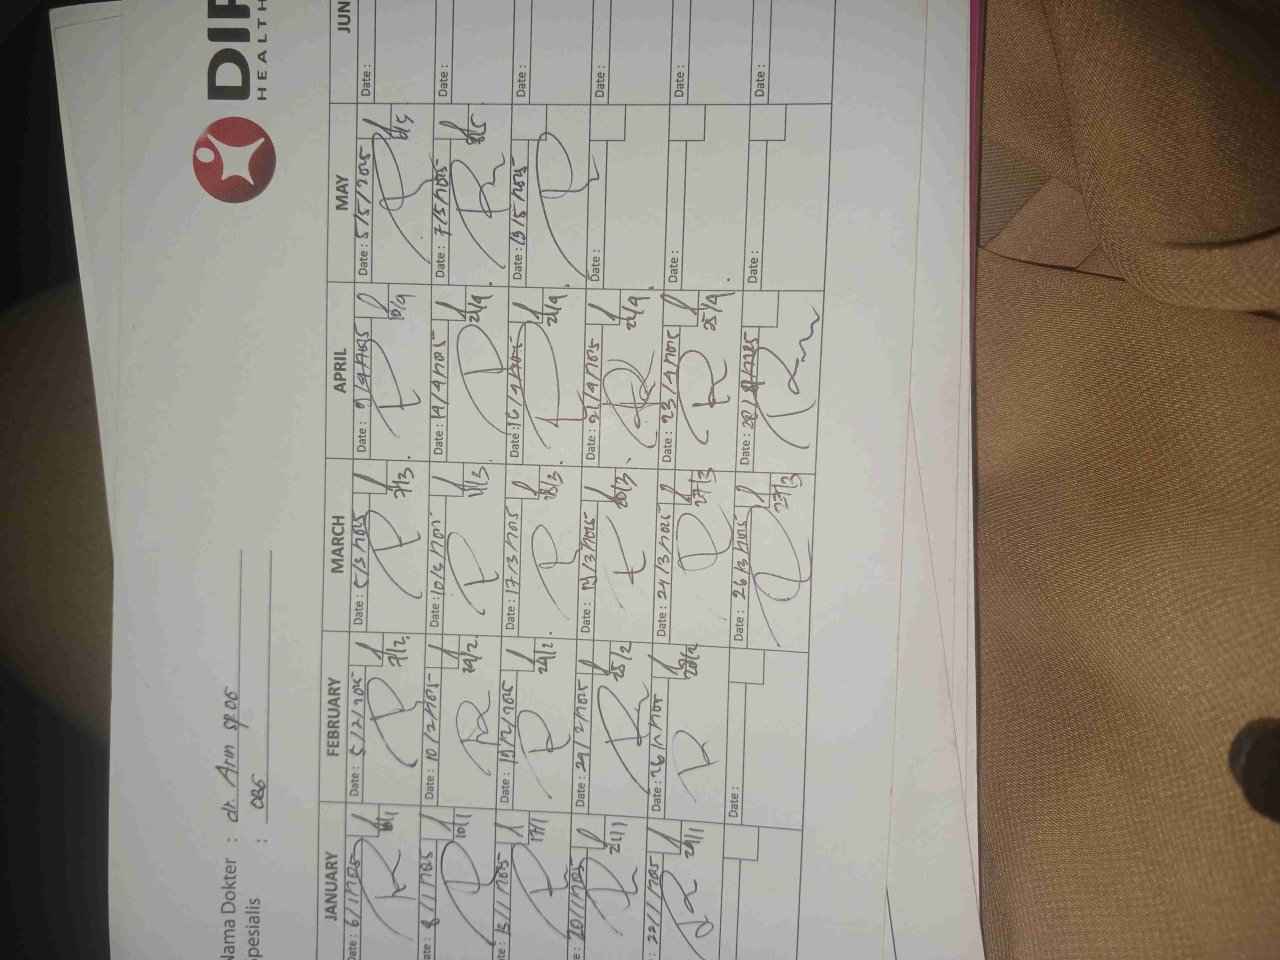 DIP
HEALTH
Nama Dokter : dr. Arin SpOG
Spesialis : OBG
JANUARY FEBRUARY MARCH APRIL MAY JUN
Date: 6/1/2025 Date: 5/2/2025 Date: 5/3/2025 Date: 9/4/2025 Date: 5/5/2025 Date:
7/2 7/3 10/4 6/5
Date: 8/1/2025 Date: 10/2/2025 Date: 10/3/2025 Date: 14/4/2025 Date: 7/5/2025 Date:
10/1 24/2 11/3 24/4 8/5
Date: 15/1/2025 Date: 19/2/2025 Date: 17/3/2025 Date: 16/4/2025 Date: 19/5/2025 Date:
17/1 24/2 18/3 24/4
Date: 20/1/2025 Date: 24/2/2025 Date: 19/3/2025 Date: 21/4/2025 Date: Date:
21/1 25/2 20/3 24/4
: 22/1/2025 Date: 26/2/2025 Date: 24/3/2025 Date: 23/4/2025 Date: Date:
24/1 28/2 27/3 25/4
Date: Date: 26/3/2025 Date: 28/4/2025 Date: Date:
27/3